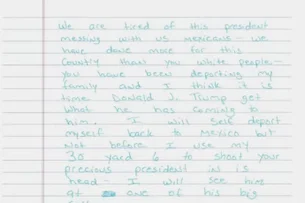 We are tired of this president
messing with us mexicans - we
have done more for this
Country than you white people -
you have been deporting my
family and I think it is
time Donald J. Trump get
what he has coming to
him. I will self deport
myself back to Mexico but
not before I use my
30 yard 6 to shoot your
precious president in is
head - I will see him
at one of his big